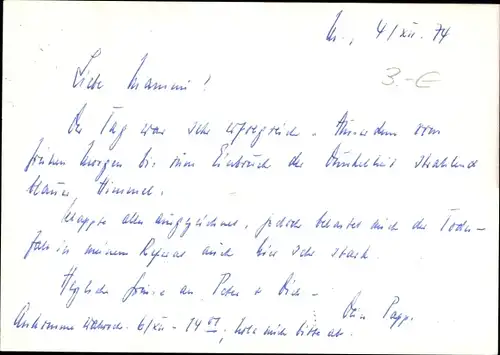 M., 4/XII. 74
3.-€
Liebe Mammi!
Der Tag war sehr erfolgreich. Ausserdem vom
frühen Morgen bis zum Einbruch der Dunkelheit strahlend
blauer Himmel.
Klappte alles ausgezeichnet, jedoch belastet mich der Todes-
fall in meinem Referat auch hier sehr stark.
Herzliche Grüsse an Peter + Dich -
Dein Papp.
Ankomme 6/XII - 14 01, hole mich bitte ab.